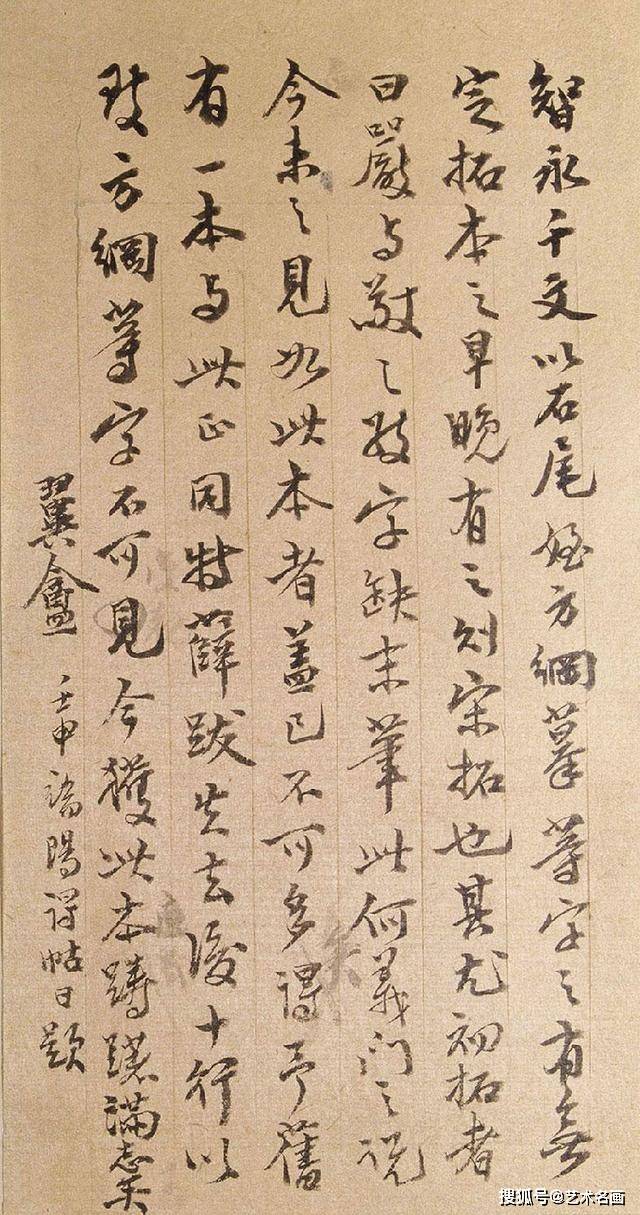 智永千文以石尾姪方綱摹等字之有無
定拓本之早晚有之則宋拓也其尤初拓者
曰嚴与敬之敬字缺末筆此何義門之說
今未之見如此本者蓋已不可多得予舊
有一本与此正同特薛跋失去後十行以
致方綱等字不可見今獲此本躊躇滿志矣
翼盦 壬申端陽得帖日題
搜狐号@艺术名画